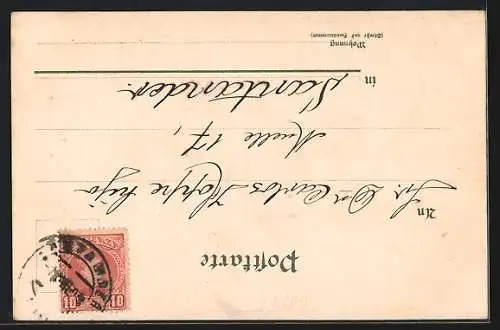 Postkarte
An Sr. Dn Carlos Hoppe hijo
Muelle 17,
in Santander.
Wohnung
(Straße und Hausnummer)
10 10